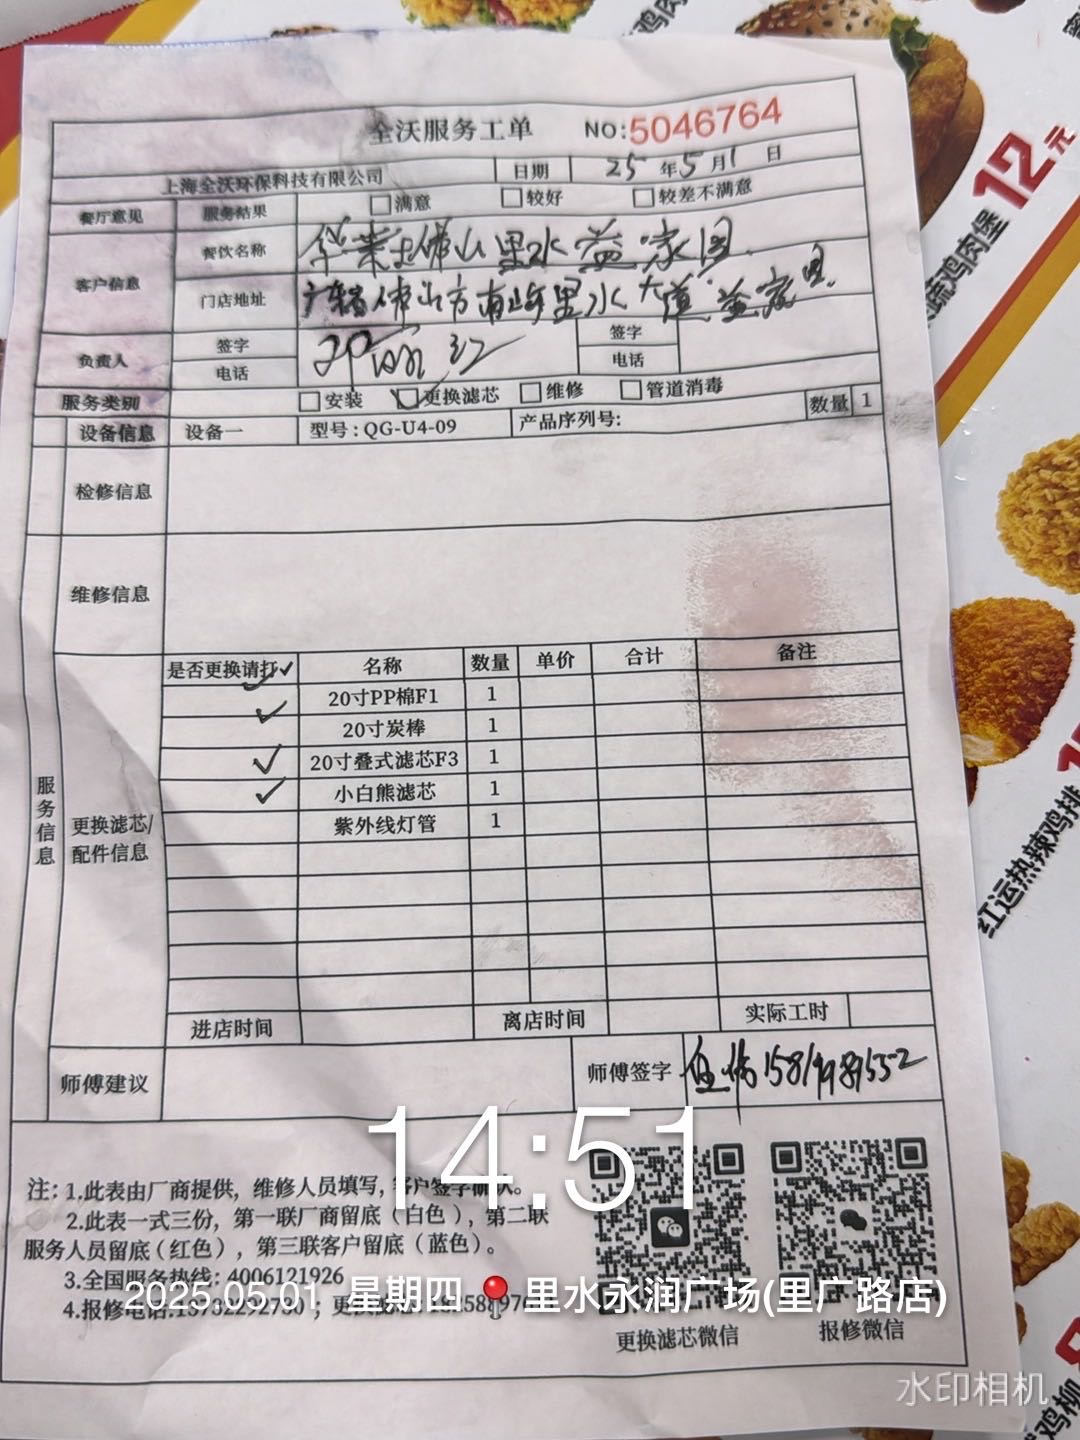 全沃服务工单 NO:5046764
上海全沃环保科技有限公司 日期 25年5月1日
餐厅意见 服务结果 满意 较好 较差不满意
客户信息 餐饮名称 华莱士佛山里水益家园
门店地址 广东省佛山市南海里水大道益家园
负责人 签字 邓 红 签字
电话 电话
服务类别 安装 更换滤芯 维修 管道消毒
设备信息 设备一 型号:QG-U4-09 产品序列号: 数量 1
检修信息
维修信息
服务信息
更换滤芯/配件信息
是否更换请打✓ 名称 数量 单价 合计 备注
✓ 20寸PP棉F1 1
✓ 20寸炭棒 1
✓ 20寸叠式滤芯F3 1
✓ 小白熊滤芯 1
紫外线灯管 1
进店时间 离店时间 实际工时
师傅建议 师傅签字
14:51
注:1.此表由厂商提供,维修人员填写,客户签字确认。
2.此表一式三份,第一联厂商留底(白色),第二联
服务人员留底(红色),第三联客户留底(蓝色)。
3.全国服务热线:4006121926
4.报修电话: ;更换
2025.05.01 星期四 里水永润广场(里广路店)
更换滤芯微信 报修微信
水印相机
12元
鸡肉堡
红运热辣鸡排
鸡柳